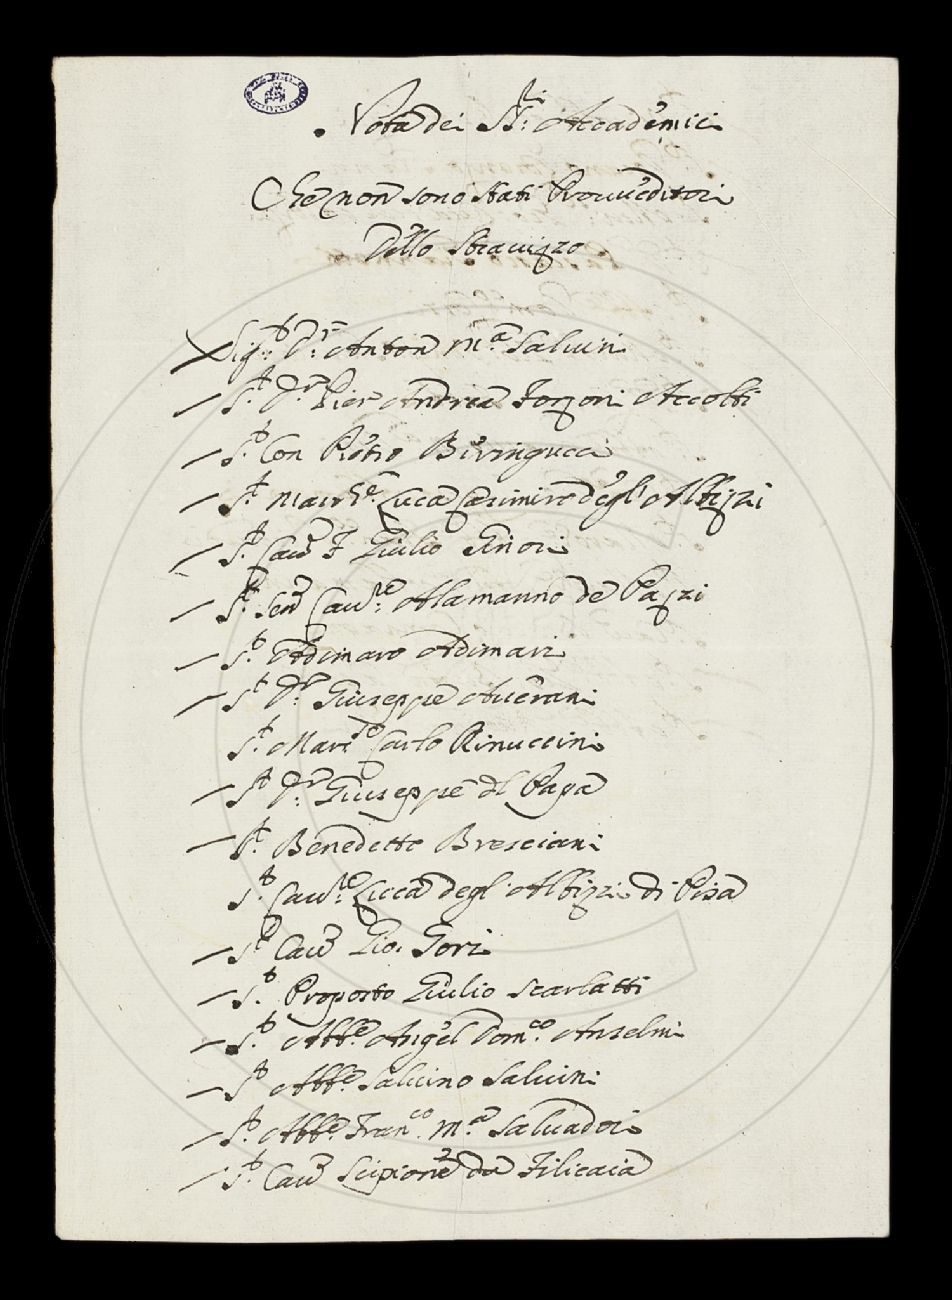 Nota dei SS:ri Accademici
Che non sono stati Provveditori
dello Stravizzo
Sig:r D:r Anton M:a Salvini
S:r D:r Pier Andrea Forzoni Accolti
S:r Con Pietro Biringucci
S:r March:e Luca Casimiro degl'Albizzi
S:r Cav F Giulio Ginori
S:r Sen Cav:re Alamanno de Pazzi
S:r Adimaro Adimari
S:r D:r Giuseppe Averani
S:r Marc:e Carlo Rinuccini
S:r D:r Giuseppe del Papa
S:r Benedetto Bresciani
S:r Cav:re Luca degl'Albizzi di Pisa
S:r Cav Gio. Gori
S:r Proposto Giulio Scarlatti
S:r Abb:e Angel Dom:co Anselmi
S:r Abb:e Salvino Salvini
S:r Abb:e Fran:co M:a Salvadori
S:r Cav Scipione da Filicaia